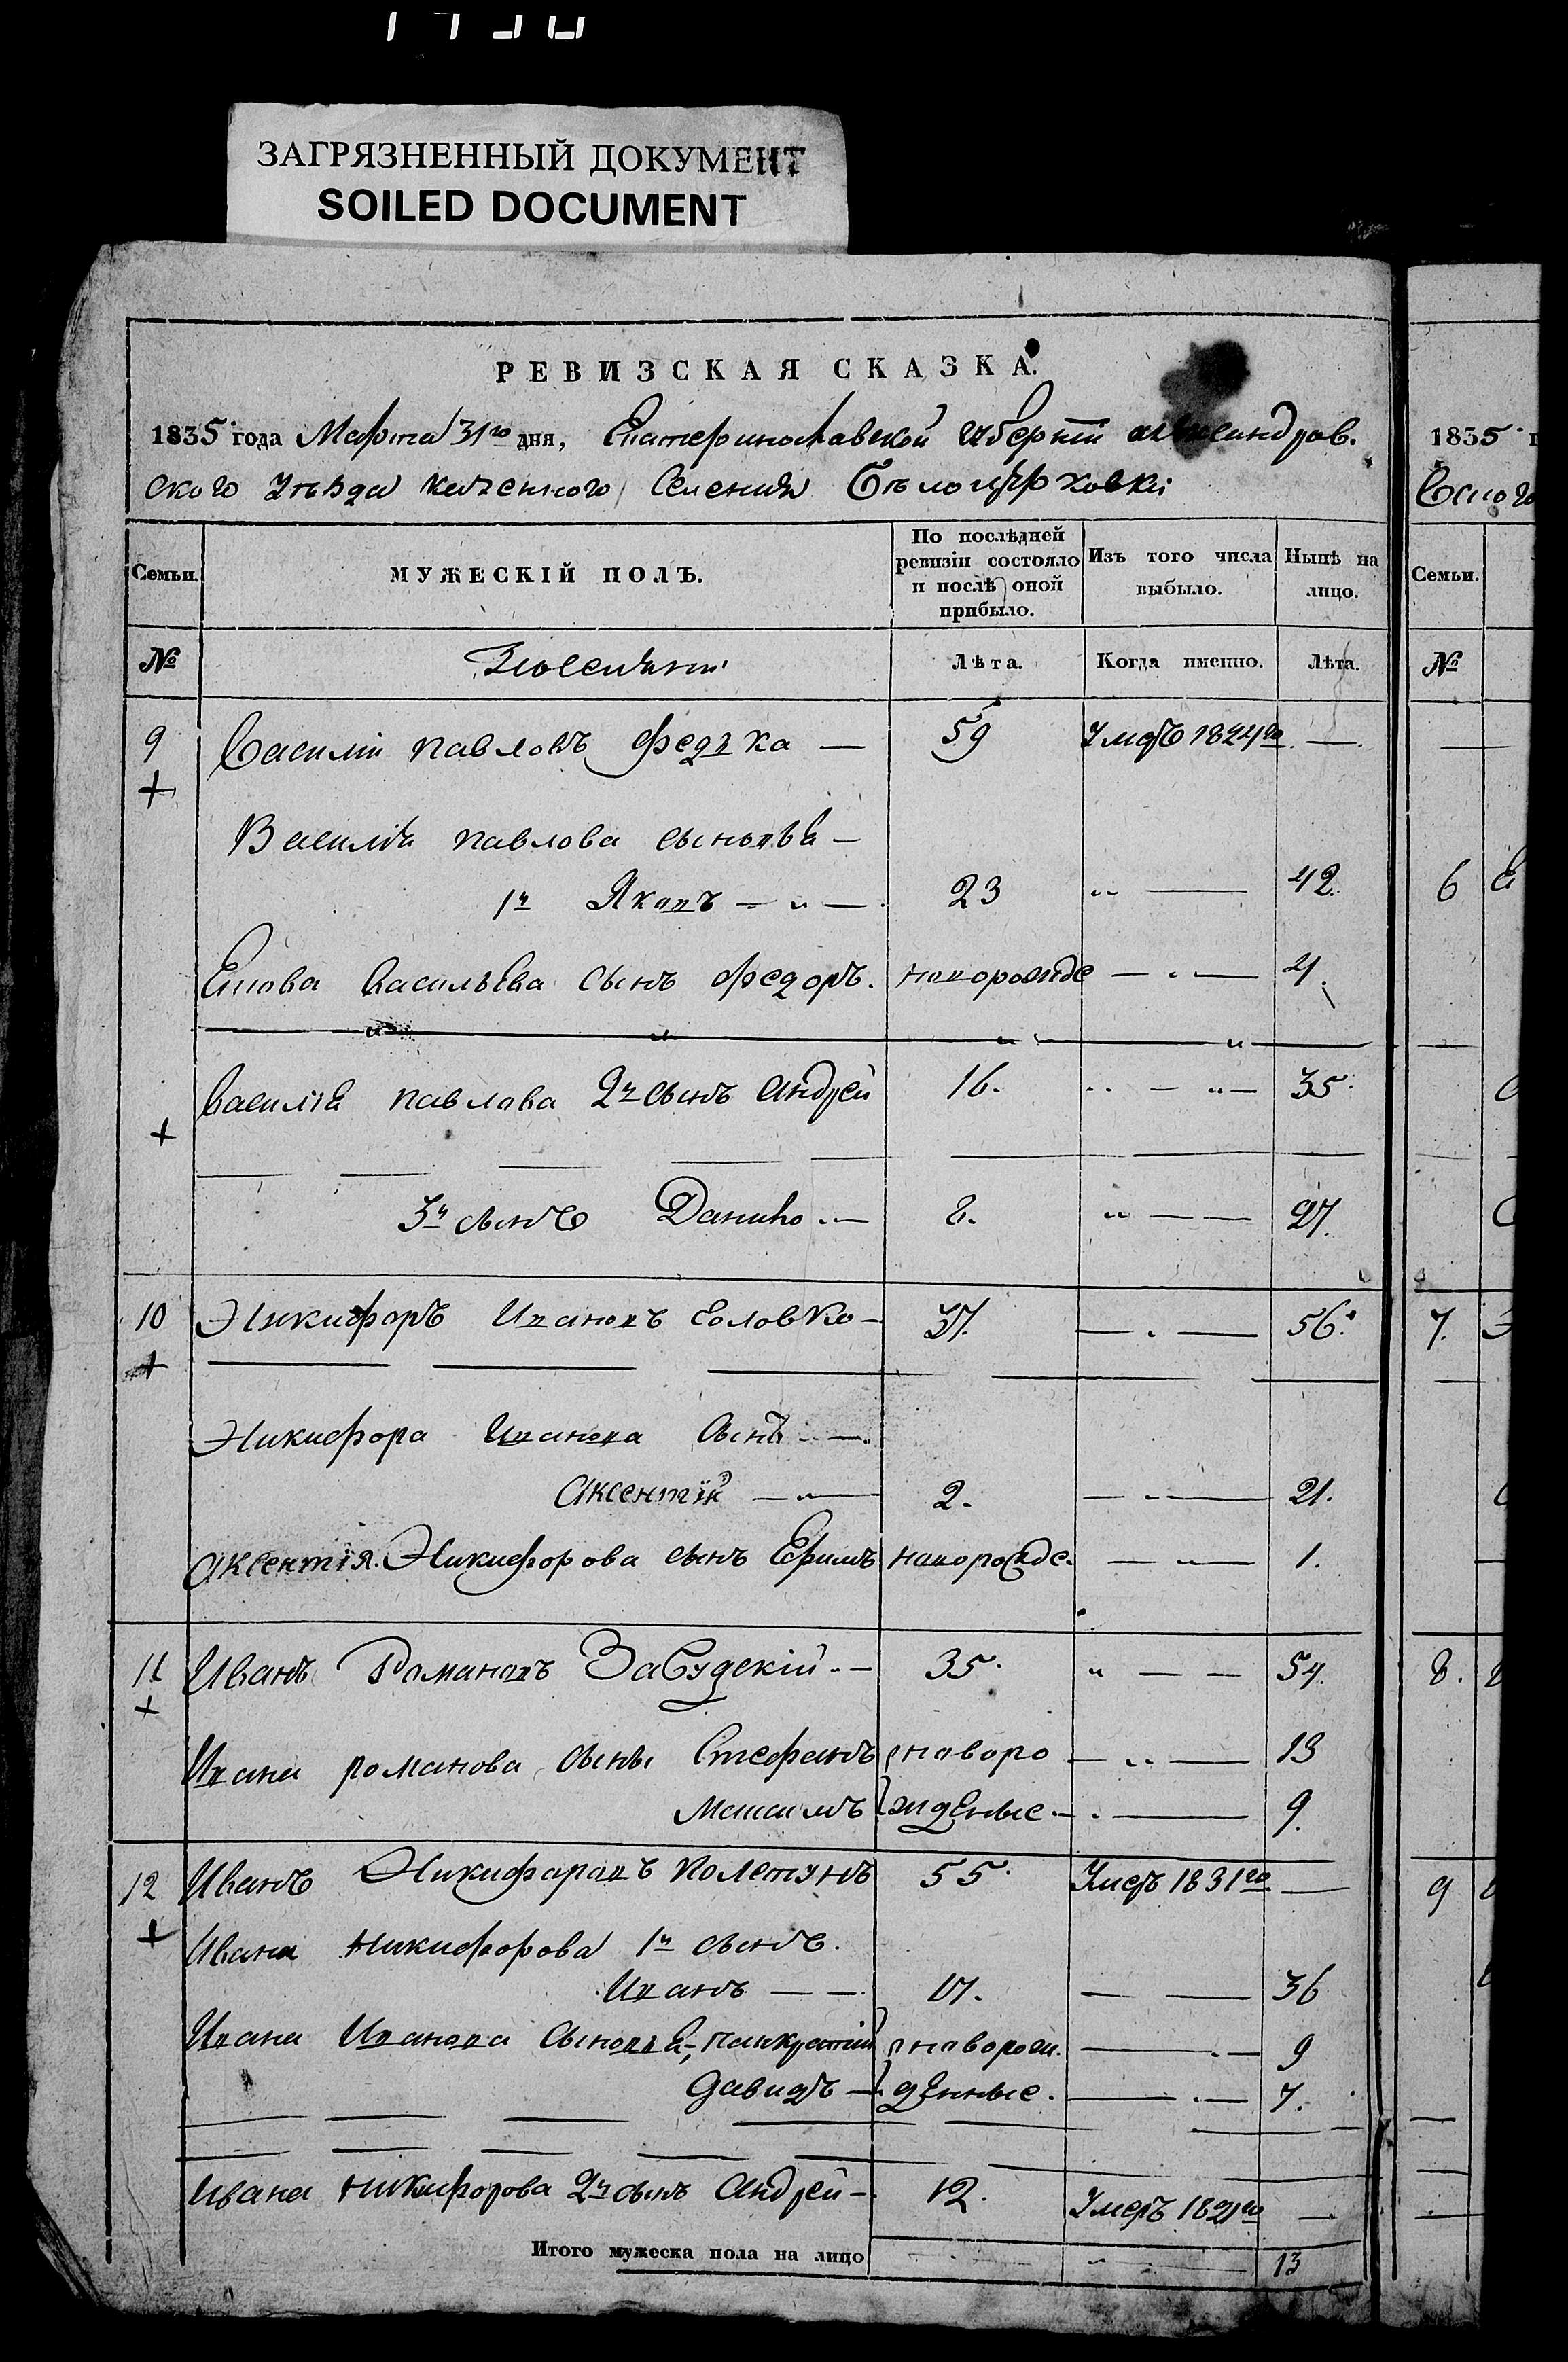 ЗАГРЯЗНЕННЫЙ ДОКУМЕНТ
SOILED DOCUMENT
РЕВИЗСКАЯ СКАЗКА.
1835 года Марта 31го дня, Екатеринославской губерніи александров.
ского уѣзда казенного Селенія Бѣлоцерковки
Семьи.
МУЖЕСКІЙ ПОЛЪ.
По послѣдней ревизіи состояло и послѣ оной прибыло.
Изъ того числа выбыло.
Нынѣ на лицо.
№
Лѣта.
Когда именно.
Лѣта.
9 Василій павловъ Федька — 59 Умеръ 1824го —
Василія павлова сыновья —
1й Яковъ — 23 — 42.
Якова васильева сынъ Федоръ. новорожде — 4.
Василія павлова 2й сынъ андрей 16. — 35.
3й сынъ Данило — 8. — 27.
10 Никифоръ Ивановъ Соловко — 37. — 56.
Никифора Иванова сынъ —
Аксентій — 2. — 21.
Аксентія Никифорова сынъ Ефимъ новорожде. — 1.
11 Иванъ Романовъ Забудскій — 35. — 54.
Ивана романова сыны Стефанъ новоро — 13
Максимъ жденые — 9.
12 Иванъ Никифоровъ колетунъ 55. Умеръ 1831го —
Ивана никифорова 1й сынъ.
Иванъ — 17. — 36
Ивана Иванова сыновья, панкратій новорож. — 9
давидъ — денные. — 7.
Ивана никифорова 2й сынъ Андрей — 12. Умеръ 1821го —
Итого мужеска пола на лицо — 13
1835
Семьи.
№
6
7.
8.
9